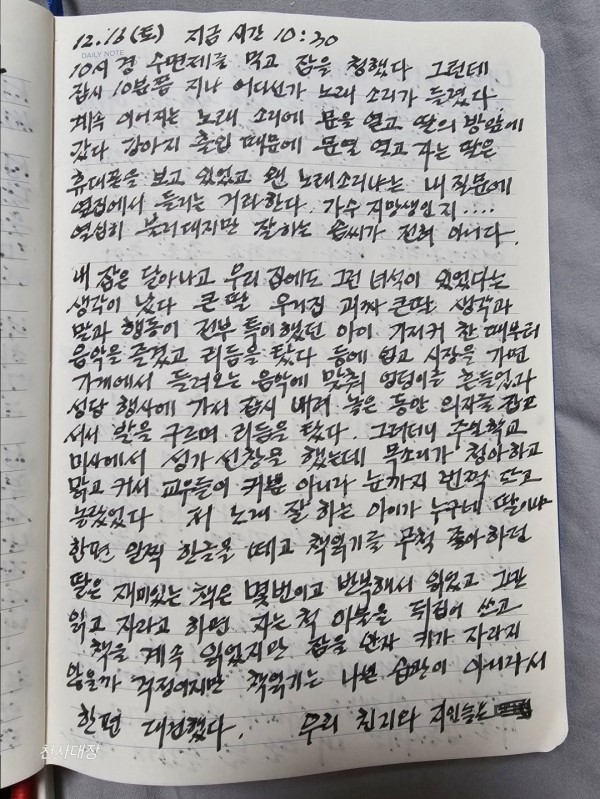 12.16(토) 지금 시간 10:30
DAILY NOTE
10시경 수면제를 먹고 잠을 청했다 그런데
잠시 10분쯤 지나 어디선가 노래 소리가 들렸다.
계속 이어지는 노래 소리에 문을 열고 딸의 방앞에
갔다 강아지 출입 때문에 문열 열고 자는 딸은
휴대폰을 보고 있었고 왠 노래소리냐는 내 질문에
옆집에서 들리는 거라한다. 가수 지망생인지....
열심히 불러대지만 잘하는 솜씨가 전혀 아니다.
내 잠은 달아나고 우리 집에도 그런 녀석이 있었다는
생각이 났다 큰 딸 우리집 괴짜 큰딸 생각과
말과 행동이 전부 특이했던 아이 기저귀 찬 때부터
음악을 즐겼고 리듬을 탔다 등에 업고 시장을 가면
가게에서 들려오는 음악에 맞춰 엉덩이를 흔들었고
성당 행사에 가서 잠시 내려 놓은 동안 의자를 잡고
서서 발을 구르며 리듬을 탔다. 그러더니 주일학교
미사에서 성가 선창을 했는데 목소리가 청아하고
맑고 커서 교우들이 귀뿐 아니라 눈까지 번쩍 뜨고
놀랐었다 저 노래 잘 하는 아이가 누구네 딸이냐
한편 일찍 한글을 떼고 책읽기를 무척 좋아하던
딸은 재미있는 책은 몇번이고 반복해서 읽었고 그만
읽고 자라고 하면 자는 척 이불을 뒤집어 쓰고
책을 계속 읽었지만 잠을 안자 키가 자라지
않을까 걱정이지만 책읽기는 나쁜 습관이 아니라서
한편 대견했다. 우리 친지와 지인들은
천사대장